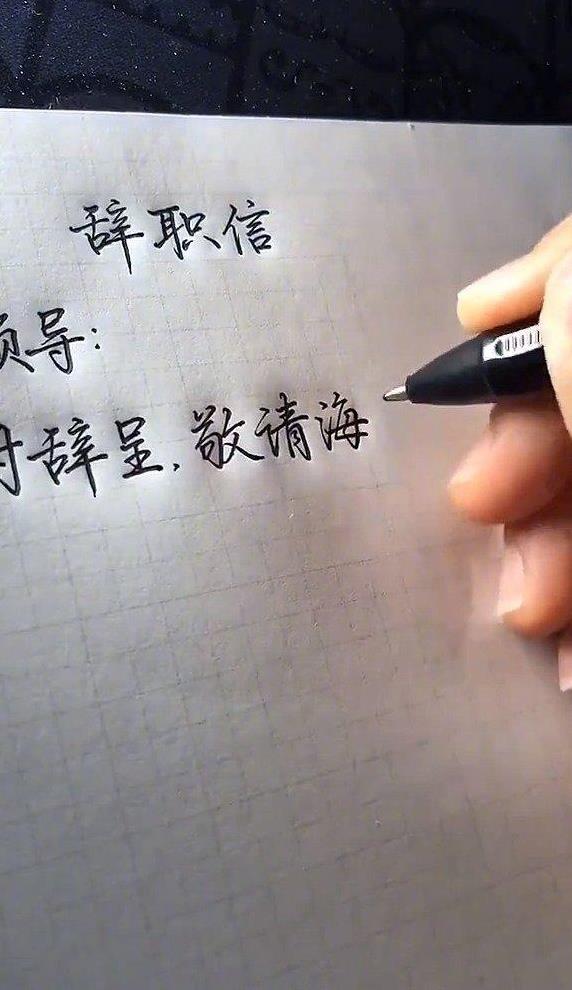 辞职信
领导:
付辞呈,敬请海